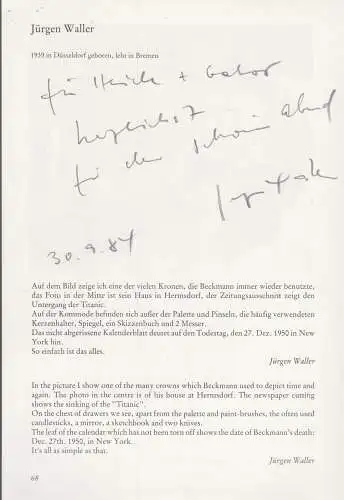 Jürgen Waller
1939 in Düsseldorf geboren, lebt in Bremen
für Heide + Gabor
herzlichst
für den schönen Abend
30.9.84
Auf dem Bild zeige ich eine der vielen Kronen, die Beckmann immer wieder benutzte,
das Foto in der Mitte ist sein Haus in Hermsdorf, der Zeitungsausschnitt zeigt den
Untergang der Titanic.
Auf der Kommode befinden sich außer der Palette und Pinseln, die häufig verwendeten
Kerzenhalter, Spiegel, ein Skizzenbuch und 2 Messer.
Das nicht abgerissene Kalenderblatt deutet auf den Todestag, den 27. Dez. 1950 in New
York hin.
So einfach ist das alles.
Jürgen Waller
In the picture I show one of the many crowns which Beckmann used to depict time and
again. The photo in the centre is of his house at Hermsdorf. The newspaper cutting
shows the sinking of the "Titanic".
On the chest of drawers we see, apart from the palette and paint-brushes, the often used
candlesticks, a mirror, a sketchbook and two knives.
The leaf of the calendar which has not been torn off shows the date of Beckmann's death:
Dec. 27th. 1950, in New York.
It's all as simple as that.
Jürgen Waller
68